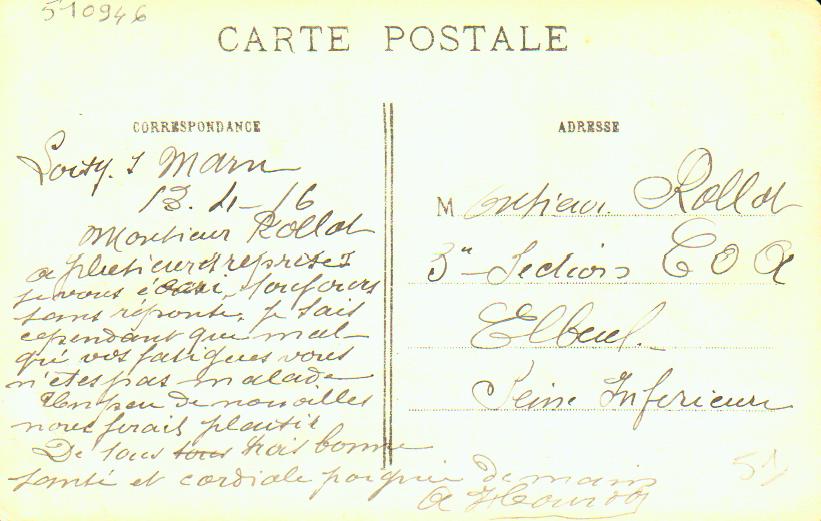 510946
CARTE POSTALE
CORRESPONDANCE
Marn
13. 4 - 16
Monsieur Rollot
a plusieurs reprises
je vous écri, toujours
sans réponse. Je sais
cependant que mal-
gré vos fatigues vous
n'êtes pas malade
Un peu de nouvelles
nous ferais plaisir
De tous trois bonne
santé et cordiale poignée de mains
ADRESSE
Monsieur Rollot
3e Section C O A
Elbeuf
Seine Inferieure
51